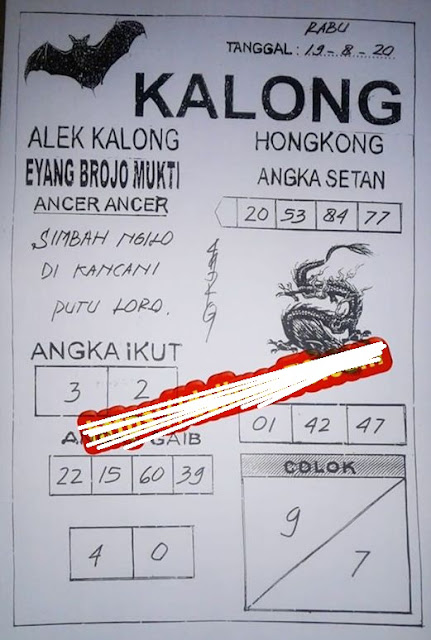 RABU
TANGGAL : 19 - 8 - 20
KALONG
ALEK KALONG
EYANG BROJO MUKTI
ANCER ANCER
SIMBAH NGILO
DI KANCANI
PUTU LORO.
HONGKONG
ANGKA SETAN
20 53 84 77
ANGKA iKUT
3 2
GAIB
22 15 60 39
4 0
01 42 47
COLOK
9
7